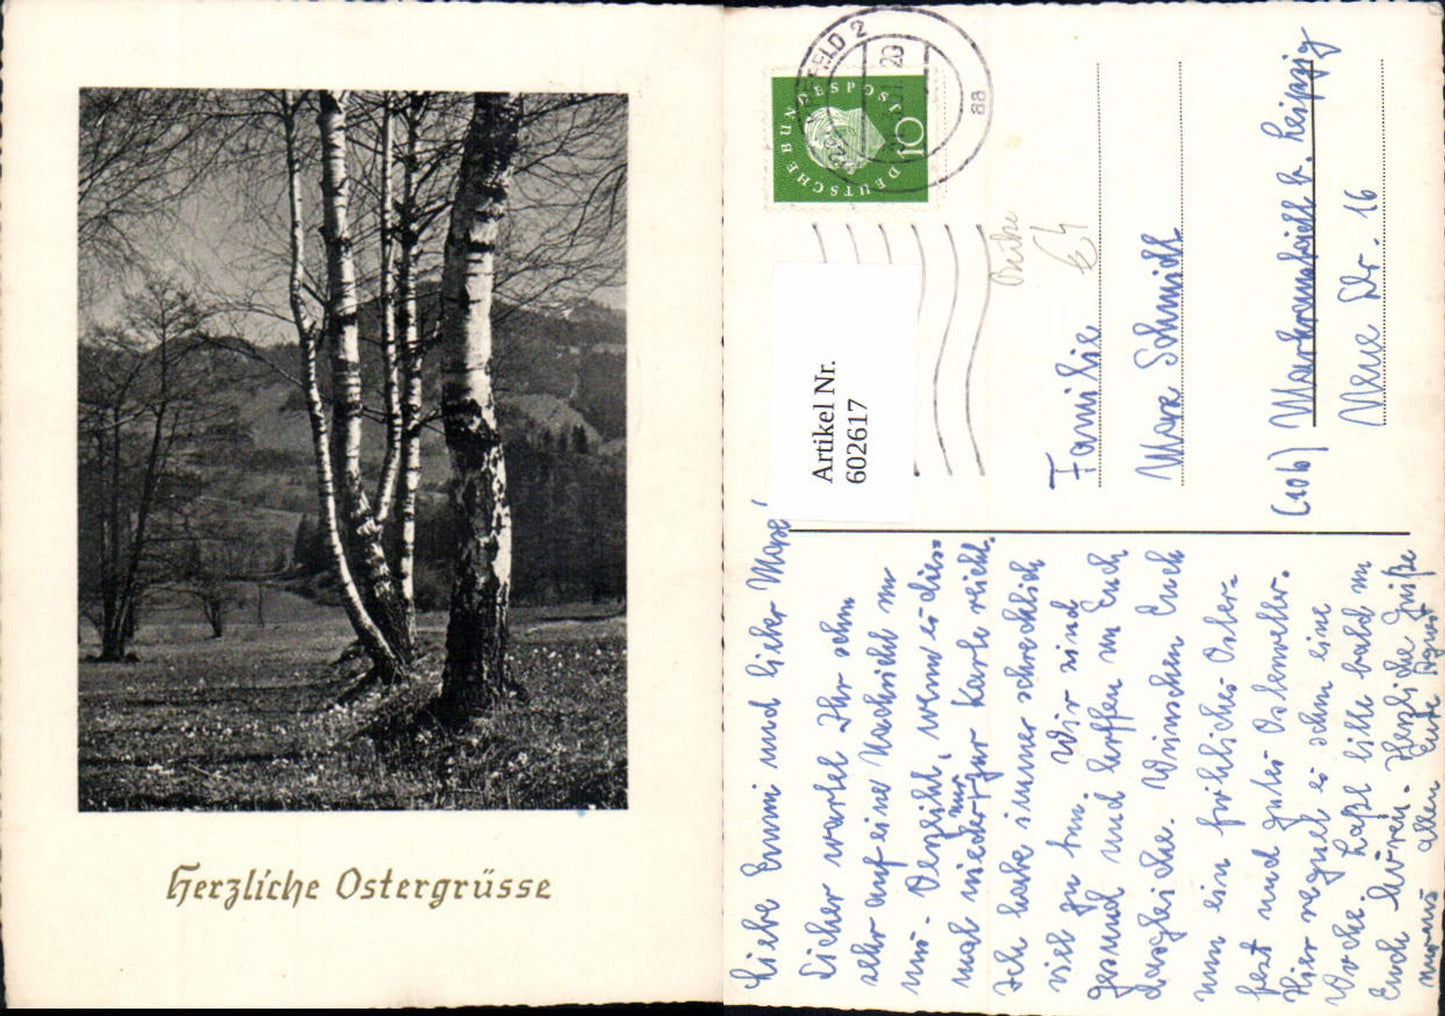 Herzliche Ostergrüsse
DEUTSCHE BUNDESPOST
10
FELD 2
20
aa
Artikel Nr.
602617
Familie
Max Schmidt
(10b) Markranstädt b. Leipzig
Neue Str. 16
Liebe Emmi und lieber Max!
Sicher wartet Ihr schon
sehr auf eine Nachricht von
uns. Verzeiht, wenn es dies-
mal wieder nur zur Karte reicht.
Ich habe immer schrecklich
viel zu tun. Wir sind
gesund und hoffen von Euch
dasgleiche. Wünschen Euch
nun ein fröhliches Oster-
fest und gutes Osterwetter.
Hier regnet es schon eine
Woche. Laßt bitte bald von
Euch hören. Herzliche Grüße
von uns allen Eure Agnes